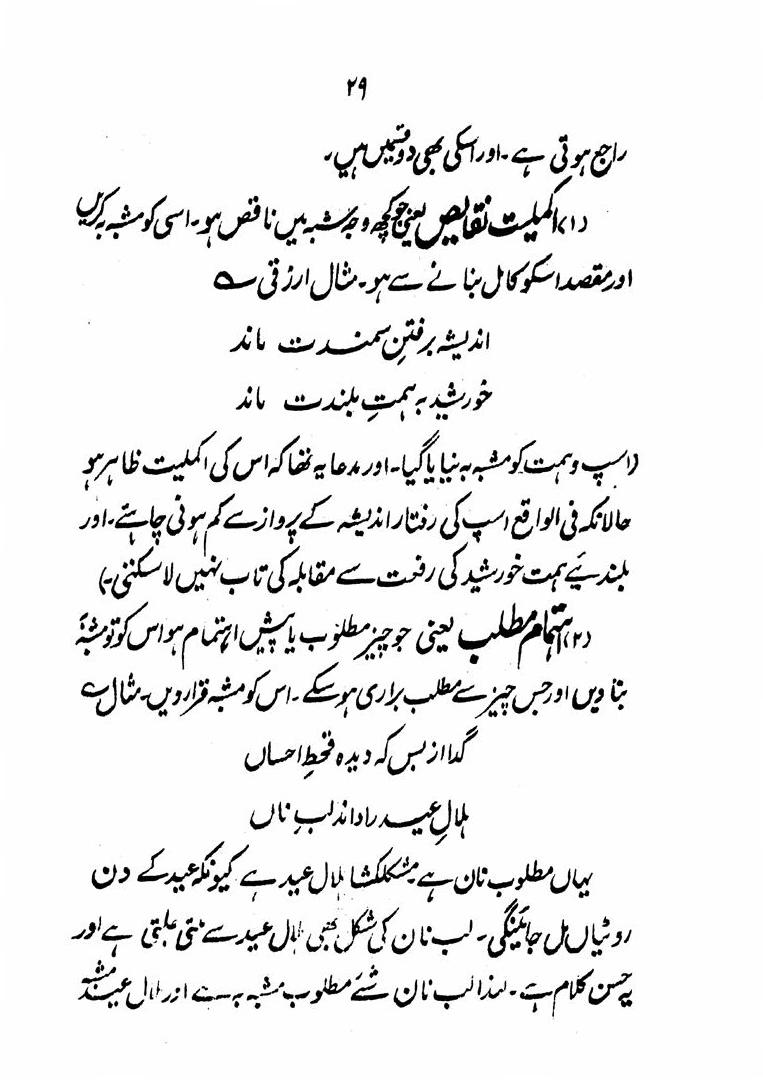 ۲۹
راجع ہوتی ہے۔ اور اسکی بھی دو قسمیں ہیں۔
(۱) اکملیت نقایص یعنی جو کچھ وجہ شبہ میں ناقص ہو۔ اسی کو مشبہ بہ کریں
اور مقصد اسکو کامل بنانے سے ہو۔ مثال ارزقی ؎
اندیشہ برفتنِ سمندت ماند
خورشید بہ ہمتِ بلندت ماند
(اسپ و ہمت کو مشبہ بہ بنایا گیا۔ اور مدعا یہ تھا کہ اس کی اکملیت ظاہر ہو
حالانکہ فی الواقع اسپ کی رفتار اندیشہ کے پرواز سے کم ہونی چاہئے۔ اور
بلندیٔے ہمت خورشید کی رفعت سے مقابلہ کی تاب نہیں لا سکتی۔)
(۲) اہتمام مطلب یعنی جو چیز مطلوب یا پیش اہتمام ہو اس کو تو مشبہ بہ
بنا دیں اور جس چیز سے مطلب براری ہو سکے۔ اس کو مشبہ قرار دیں۔ مثال ؎
گدا از بس کہ دیدہ قحطِ احساں
ہلالِ عید را داند لبِ ناں
یہاں مطلوب نان ہے مشکلکشا ہلال عید ہے کیونکہ عید کے دن
روٹیاں مل جائینگی۔ لب نان کی شکل بھی ہلال عید سے ملتی جلتی ہے اور
یہ حسن کلام ہے۔ لہذا لب نان شئے مطلوب مشبہ بہ ہے اور ہلال عید مشبہ